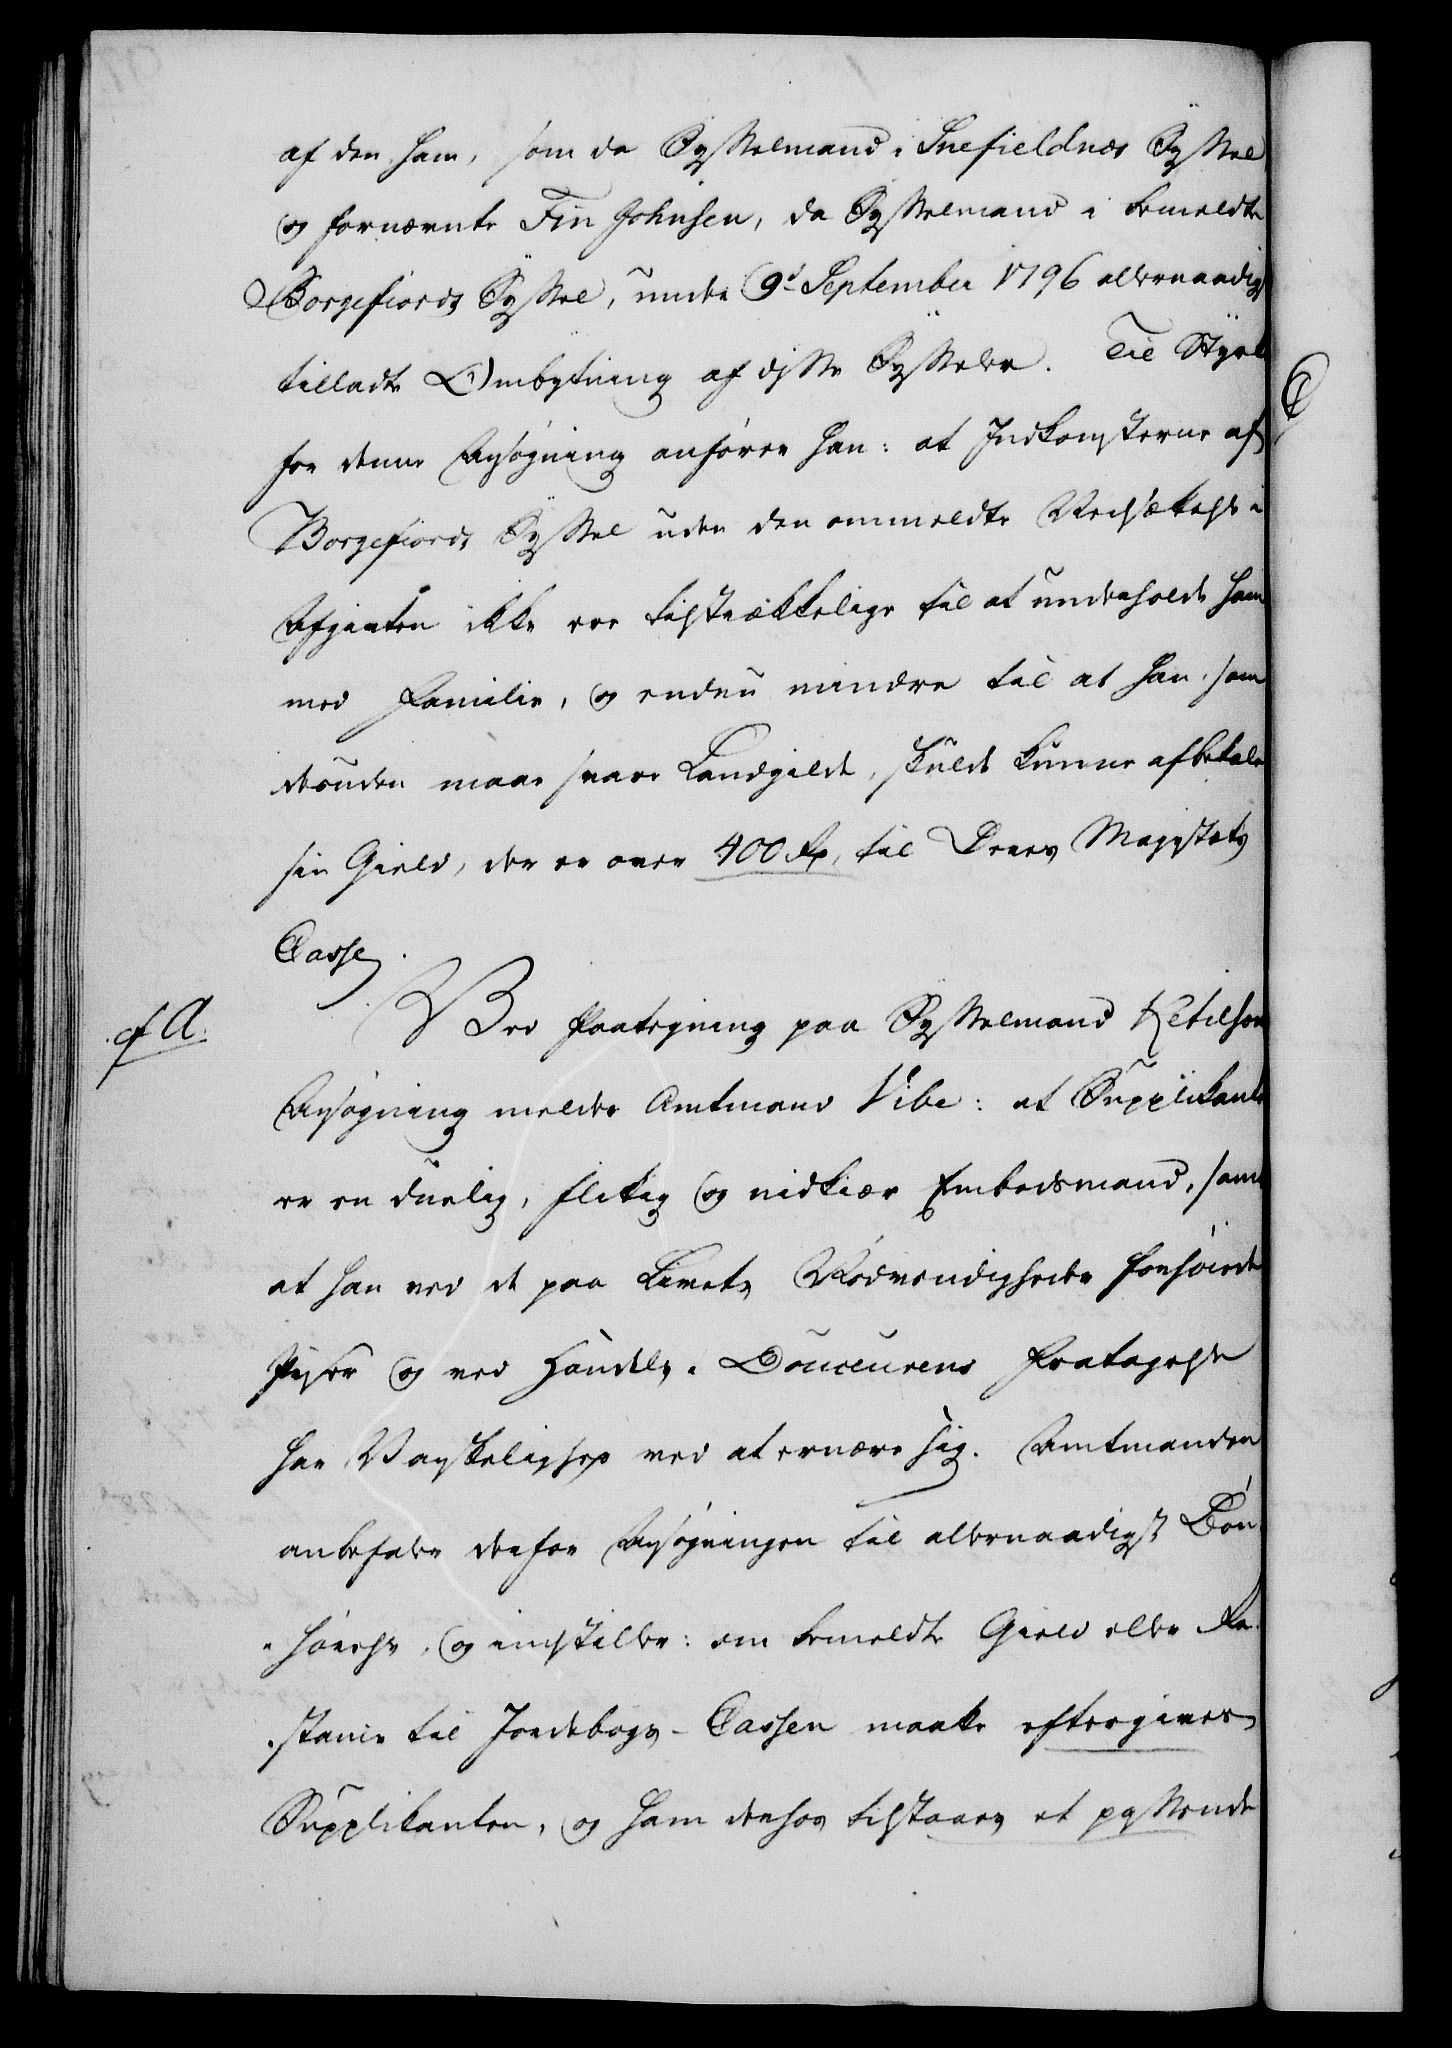 af den ham, som da Sysselmand i Snefieldnæs Syssel
og fornævnte Fin Johnsen, da Sysselmand i bemeldte
Borgefiords Syssel, under 9d September 1796 allernaadigst
tilladte Ombytning af disse Sysseler. Til Styrke
for denne Ansøgning anfører han: at Indkomsterne af
Borgefiords Syssel uden den ommeldte Nedsættelse i
Afgivten ikke ere tilstrækkelige til at underholde ham
med Familie, og endnu mindre til at han, som
desuden maae svare Landgilde, skulde kunne afbetale
sin Gield, der er over 400 Rd, til Deres Majestæts
Casse.
cf A.
Ved Paategning paa Sysselmand Ketilsons
Ansøgning melder Amtmand Vibe: at Supplikanten
er en duelig, flittig og nidkiær Embedsmand, samt
at han ved de paa Livets Nødvendigheder forhøiede
Priser og ved Handels-Douceurens Fratagelse
har Vanskelighed ved at ernære sig. Amtmanden
anbefaler derfor Ansøgningen til allernaadigst Bøn-
hørelse, og indstiller: om bemeldte Gield eller Re-
stance til Jordebogs-Cassen maatte eftergives
Supplikanten, og ham derhos tilstaaes et passende